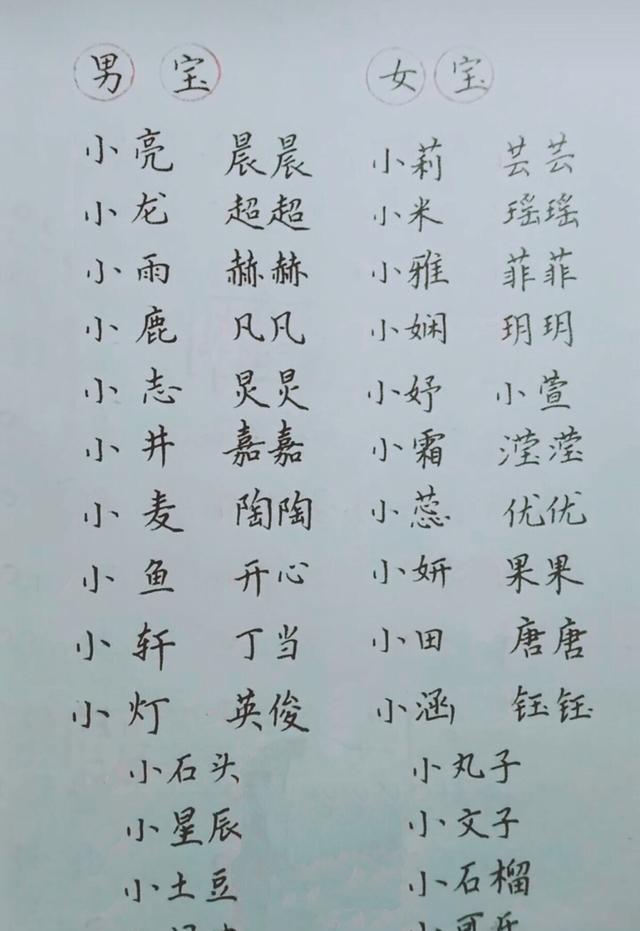 男宝 女宝
小亮 晨晨 小莉 芸芸
小龙 超超 小米 瑶瑶
小雨 赫赫 小雅 菲菲
小鹿 凡凡 小娴 玥玥
小志 炅炅 小妤 小萱
小井 嘉嘉 小霜 滢滢
小麦 陶陶 小蕊 优优
小鱼 开心 小妍 果果
小轩 丁当 小田 唐唐
小灯 英俊 小涵 钰钰
小石头 小丸子
小星辰 小文子
小土豆 小石榴